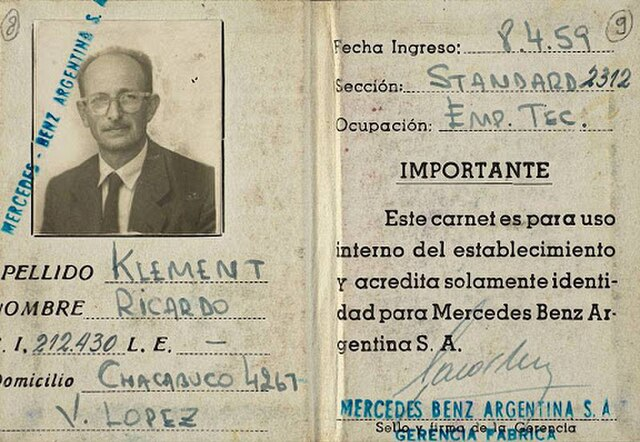 8
MERCEDES - BENZ ARGENTINA S. A
PELLIDO KLEMENT
OMBRE RICARDO
. I. 212.430 L. E. —
Domicilio CHACABUCO 4267
V. LOPEZ
9
Fecha Ingreso: 8.4.59
Sección: STANDARD 2312
Ocupación: EMP. TEC.
IMPORTANTE
Este carnet es para uso
interno del establecimiento
y acredita solamente identi-
dad para Mercedes Benz Ar-
gentina S. A.
MERCEDES BENZ ARGENTINA S. A
Sello y firma de la Gerencia
GERENCIA FABRICA